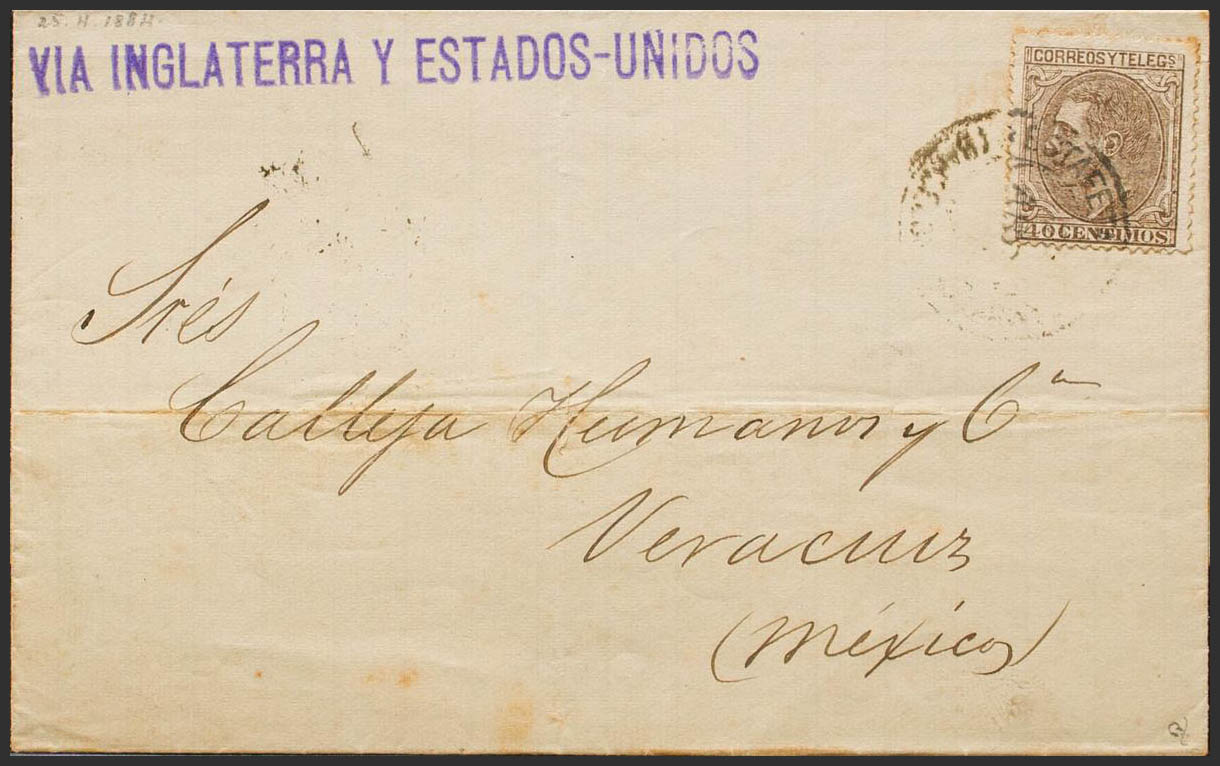 25.4.1884.
VIA INGLATERRA Y ESTADOS-UNIDOS
CORREOS Y TELEGS
40 CENTIMOS
Srés
Calleja Hermanos y Cª
Veracruz
(México)